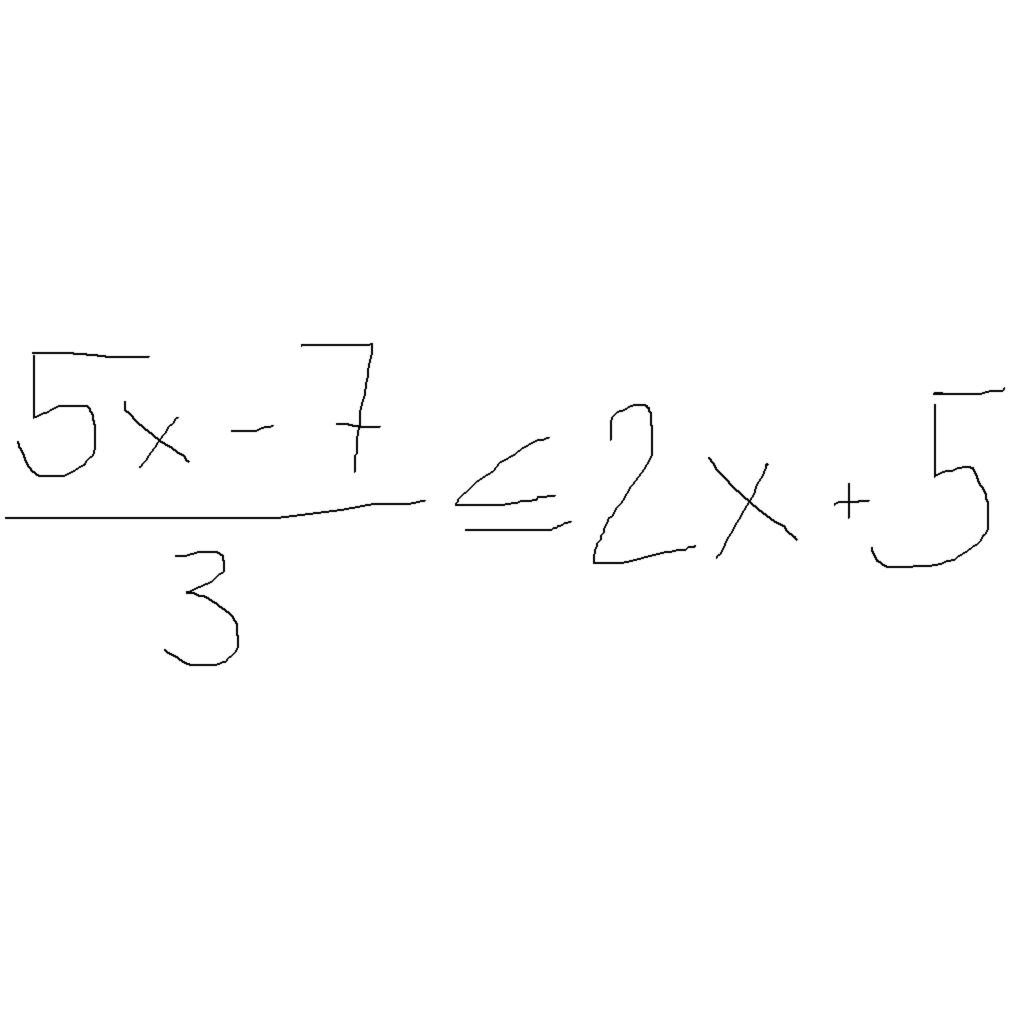 \frac{5x-7}{3} ≤ 2x+5